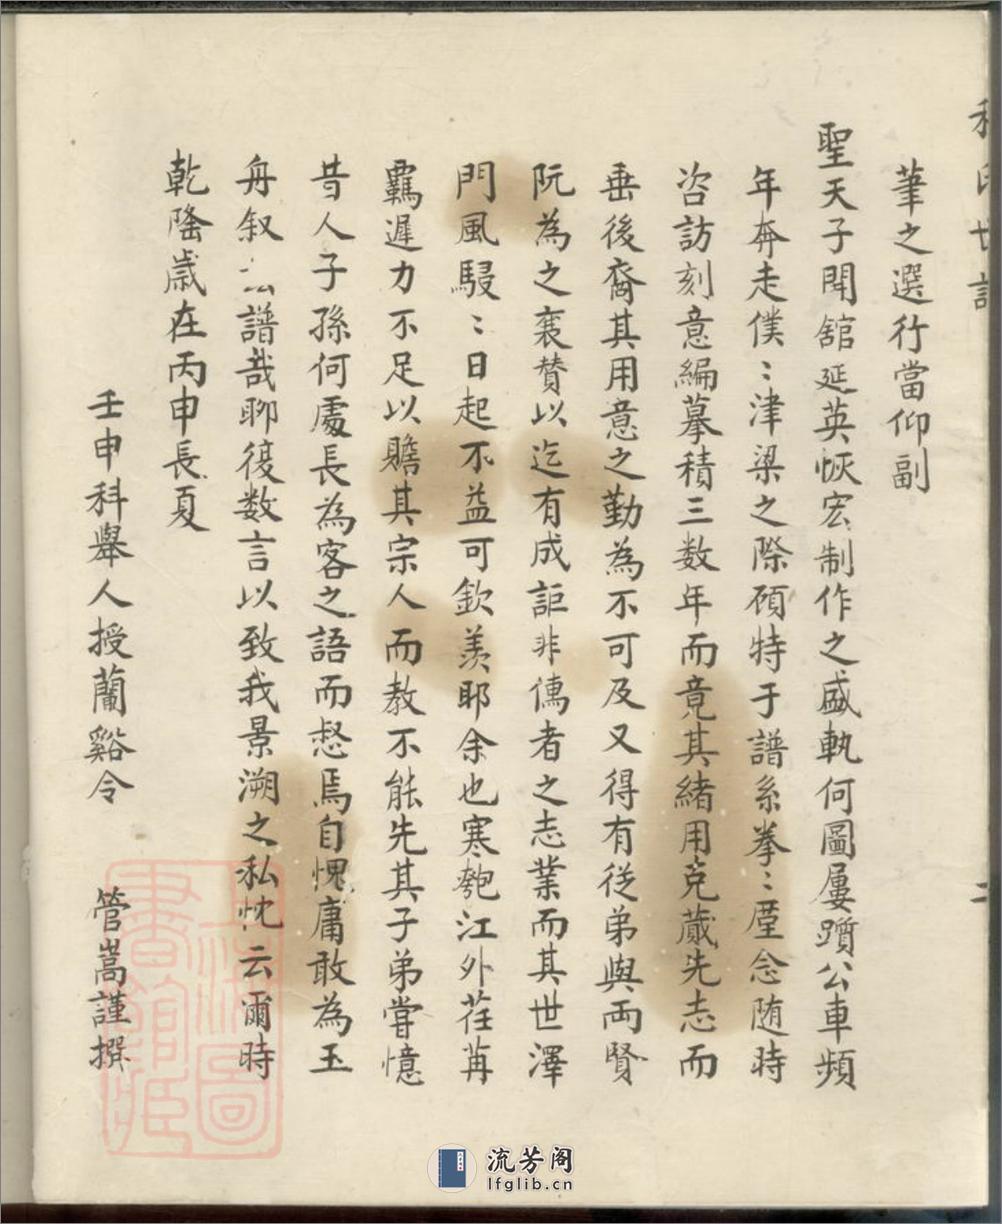 筆之選行當仰副
聖天子開舘延英恢宏制作之盛軌何圖屢躓公車頻
年奔走僕〻津梁之際顾特于譜系拳〻廑念随時
咨訪刻意編摹積三数年而竟其緒用克蕆先志而
垂後裔其用意之勤為不可及又得有従弟與両賢
阮為之襄賛以迄有成詎非儁者之志業而其世澤
門風駸〻日起不益可欽羨耶余也寒匏江外荏苒
羈遲力不足以贍其宗人而教不能先其子弟嘗憶
昔人子孫何處長為客之語而惄焉自愧庸敢為玉
舟叙譜哉聊復数言以致我景溯之私忱云爾時
乾隆歳在丙申長夏
壬申科舉人授蘭谿令 管嵩謹撰
上海圖書館藏
流芳阁
lfglib.cn